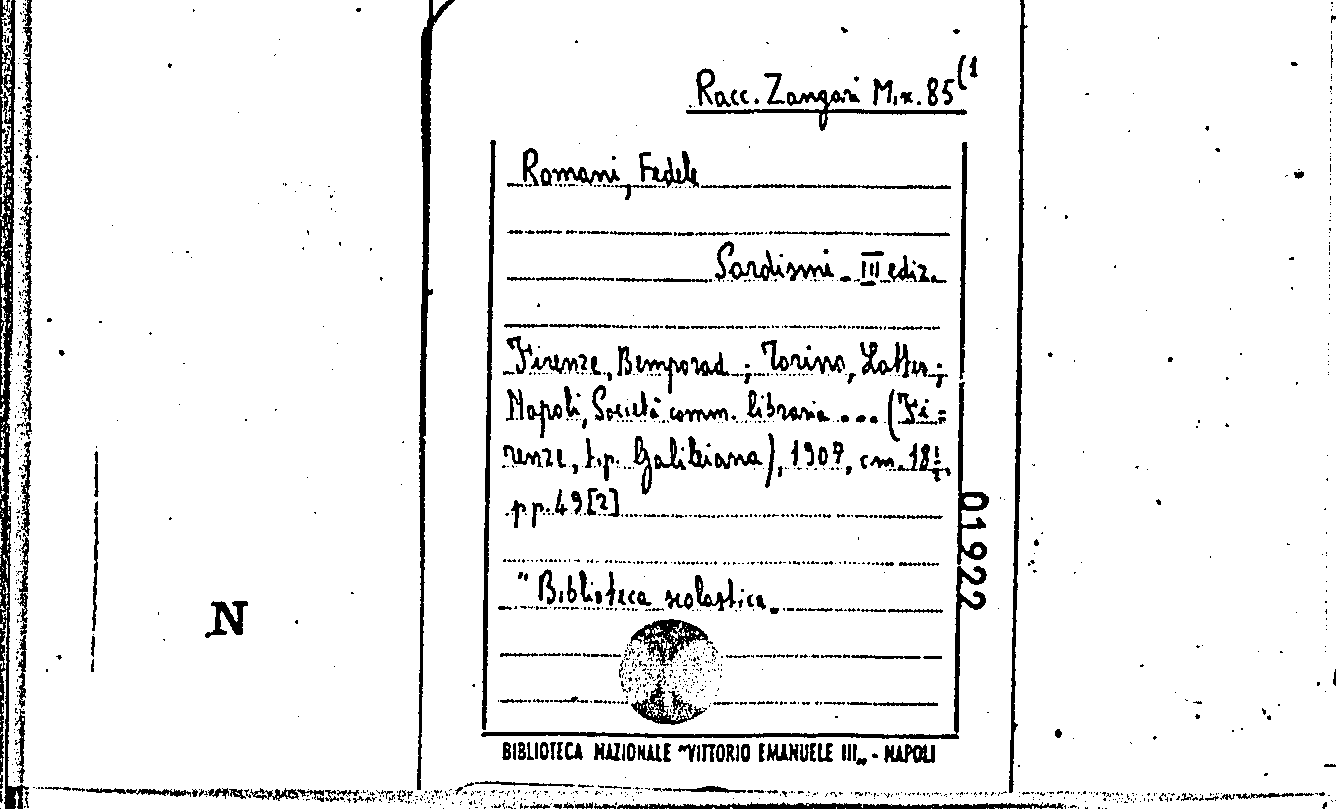 Racc. Zangari Mix. 85(1
Romani, Fedele
Sardismi - III ediz.
Firenze, Bemporad ; Torino, Lattes ;
Napoli, Società comm. libraria ... (Fi=
renze, tip. Galileiana), 1907, cm. 18½,
pp. 49 [2]
"Biblioteca scolastica.
01922
N
BIBLIOTECA NAZIONALE "VITTORIO EMANUELE III„ - NAPOLI